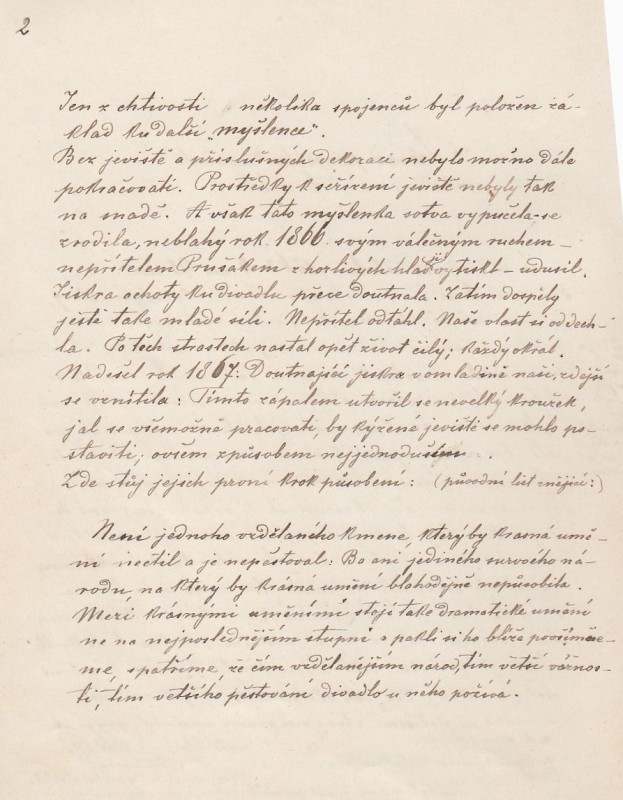 2
Jen z chtivosti několika spojenců byl položen zá-
klad ku další „myšlence".
Bez jeviště a příslušných dekorací nebylo možno dále
pokračovati. Prostředky k seřízení jeviště nebyly tak
na snadě. A však tato myšlenka sotva vypučela-se
zrodila, neblahý rok 1866. svým válečným ruchem –
nepřítelem Prušákem z horlivých hlav – udusil.
Jiskra ochoty ku divadlu přece doutnala. Zatím dospěly
ještě také mladé síli. Nepřítel odtáhl. Naše vlast si oddech-
la. Po těch strastech nastal opět život čilý; každý okřál.
Nadešel rok 1867. Doutnající jiskra v omladině naší, zdejší
se vznítila: Tímto zápalem utvořil se nevelký kroužek,
jal se všemožně pracovati, by kýžené jeviště se mohlo po-
staviti; ovšem způsobem nejjednodušším.
Zde stůj jejich první krok působení: (původní list znějící:)
Není jednoho vzdělaného kmene, který by krásná umě-
ní nectil a je nepěstoval: Ba ani jediného surového ná-
rodu, na který by krásná umění blahodějně nepůsobila.
Mezi krásnými uměními stojí také dramatické umění
ne na nejposlednějším stupni a pakli si ho blíže povšimne-
me, spatříme, že čím vzdělanějším národ, tím větší vážnos-
ti, tím většího pěstování divadlo u něho požívá.